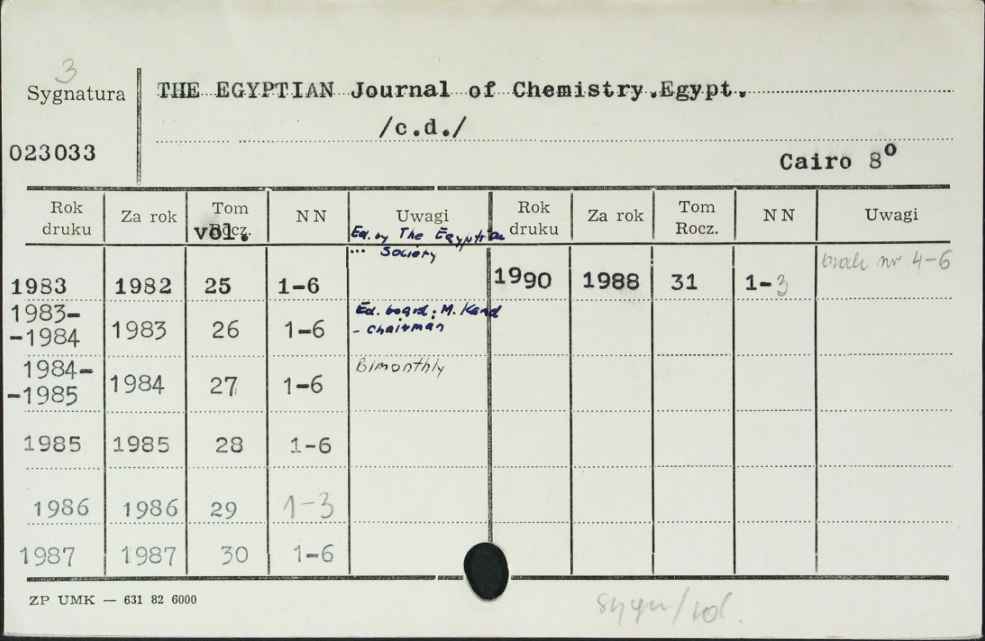 3
Sygnatura
THE EGYPTIAN Journal of Chemistry.Egypt.
/c.d./
023033
Cairo 8º
Rok druku Za rok Tom Rocz. vol. NN Uwagi Rok druku Za rok Tom Rocz. NN Uwagi
Ed. by The Egyptian
... Society
1983 1982 25 1-6 1990 1988 31 1-3 brak nr 4-6
1983-
-1984 1983 26 1-6 Ed. board: M. Kand
- chairman
1984-
-1985 1984 27 1-6 Bimonthly
1985 1985 28 1-6
1986 1986 29 1-3
1987 1987 30 1-6
ZP UMK — 631 82 6000
sygn/vol.